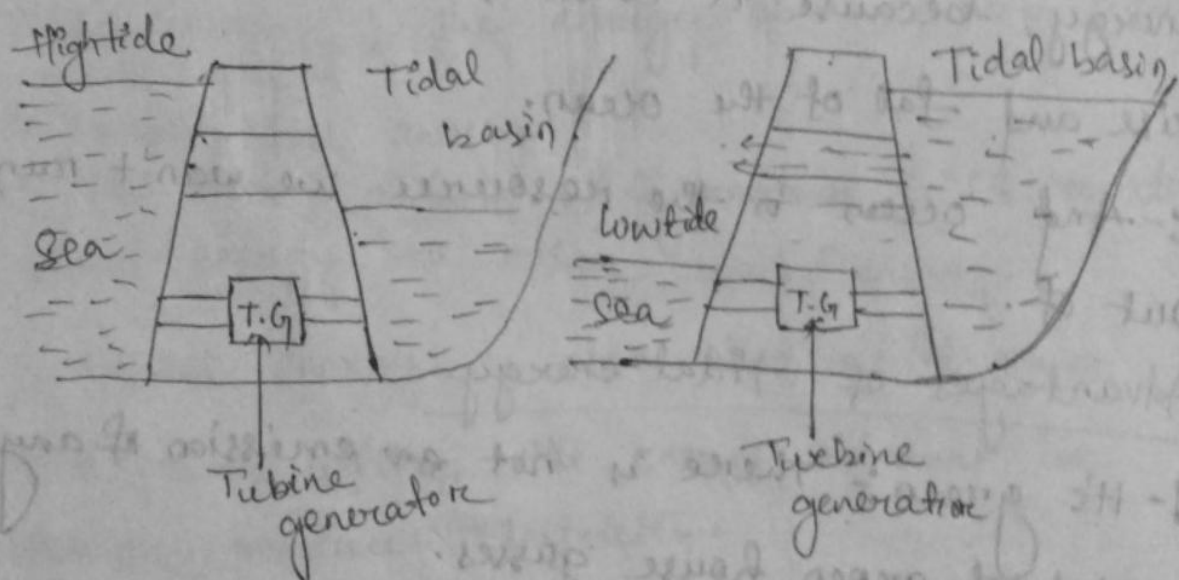 Hightide
Tidal
basin
Sea
T.G
Tubine
generatore
Tidal basin
Lowtide
Sea
T.G
Twebine
generatioe